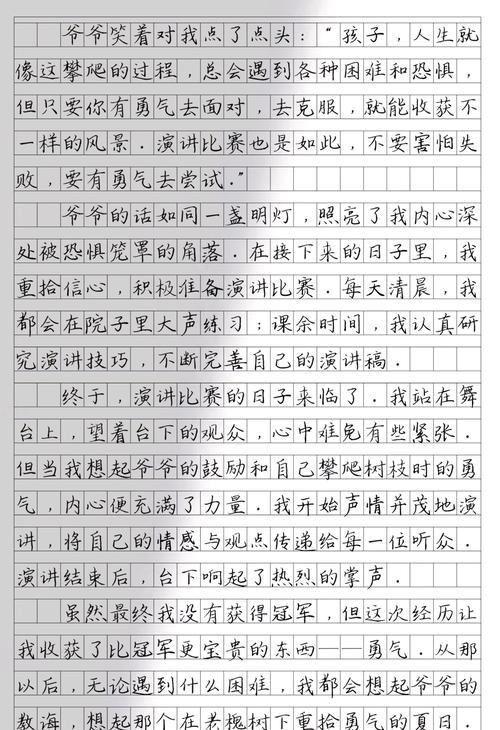 爷爷笑着对我点了点头：“孩子，人生就
像这攀爬的过程，总会遇到各种困难和恐惧，
但只要你有勇气去面对，去克服，就能收获不
一样的风景．演讲比赛也是如此，不要害怕失
败，要有勇气去尝试．”
爷爷的话如同一盏明灯，照亮了我内心深
处被恐惧笼罩的角落．在接下来的日子里，我
重拾信心，积极准备演讲比赛．每天清晨，我
都会在院子里大声练习；课余时间，我认真研
究演讲技巧，不断完善自己的演讲稿．
终于，演讲比赛的日子来临了．我站在舞
台上，望着台下的观众，心中难免有些紧张．
但当我想起爷爷的鼓励和自己攀爬树枝时的勇
气，内心便充满了力量．我开始声情并茂地演
讲，将自己的情感与观点传递给每一位听众．
演讲结束后，台下响起了热烈的掌声．
虽然最终我没有获得冠军，但这次经历让
我收获了比冠军更宝贵的东西——勇气．从那
以后，无论遇到什么困难，我都会想起爷爷的
教诲，想起那个在老槐树下重拾勇气的夏日．